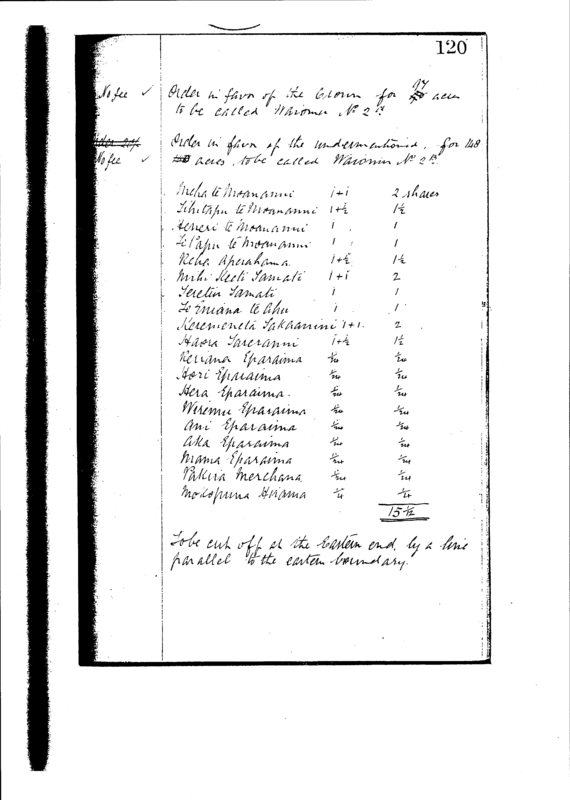 120
No fee ✓ Order in favor of the Crown for 17 acres
to be called Waiomu No 2A
Order in favor of the undermentioned, for 148
No fee ✓ acres, to be called Waiomu No 2B
Meha te Moananui 1+1 2 shares
Tihitapu te Moananui 1+½ 1½
Heneri te Moananui 1 1
Te Tapu te Moananui 1 1
Reha Aperahama 1+½ 1½
Mihi Keeti Tamati 1+1 2
Teretiu Tamati 1 1
Te Eniana te Ahu 1 1
Keremeneta Takaanini 1+1 2
Haora Tareranui 1+½ 1½
Reriana Eparaima
Hori Eparaima
Hera Eparaima
Wiremu Eparaima
Ani Eparaima
Aka Eparaima
Mama Eparaima
Pakira Merehana
Mokopuna Hirama
15
To be cut off at the Eastern end, by a line
parallel to the eastern boundary.